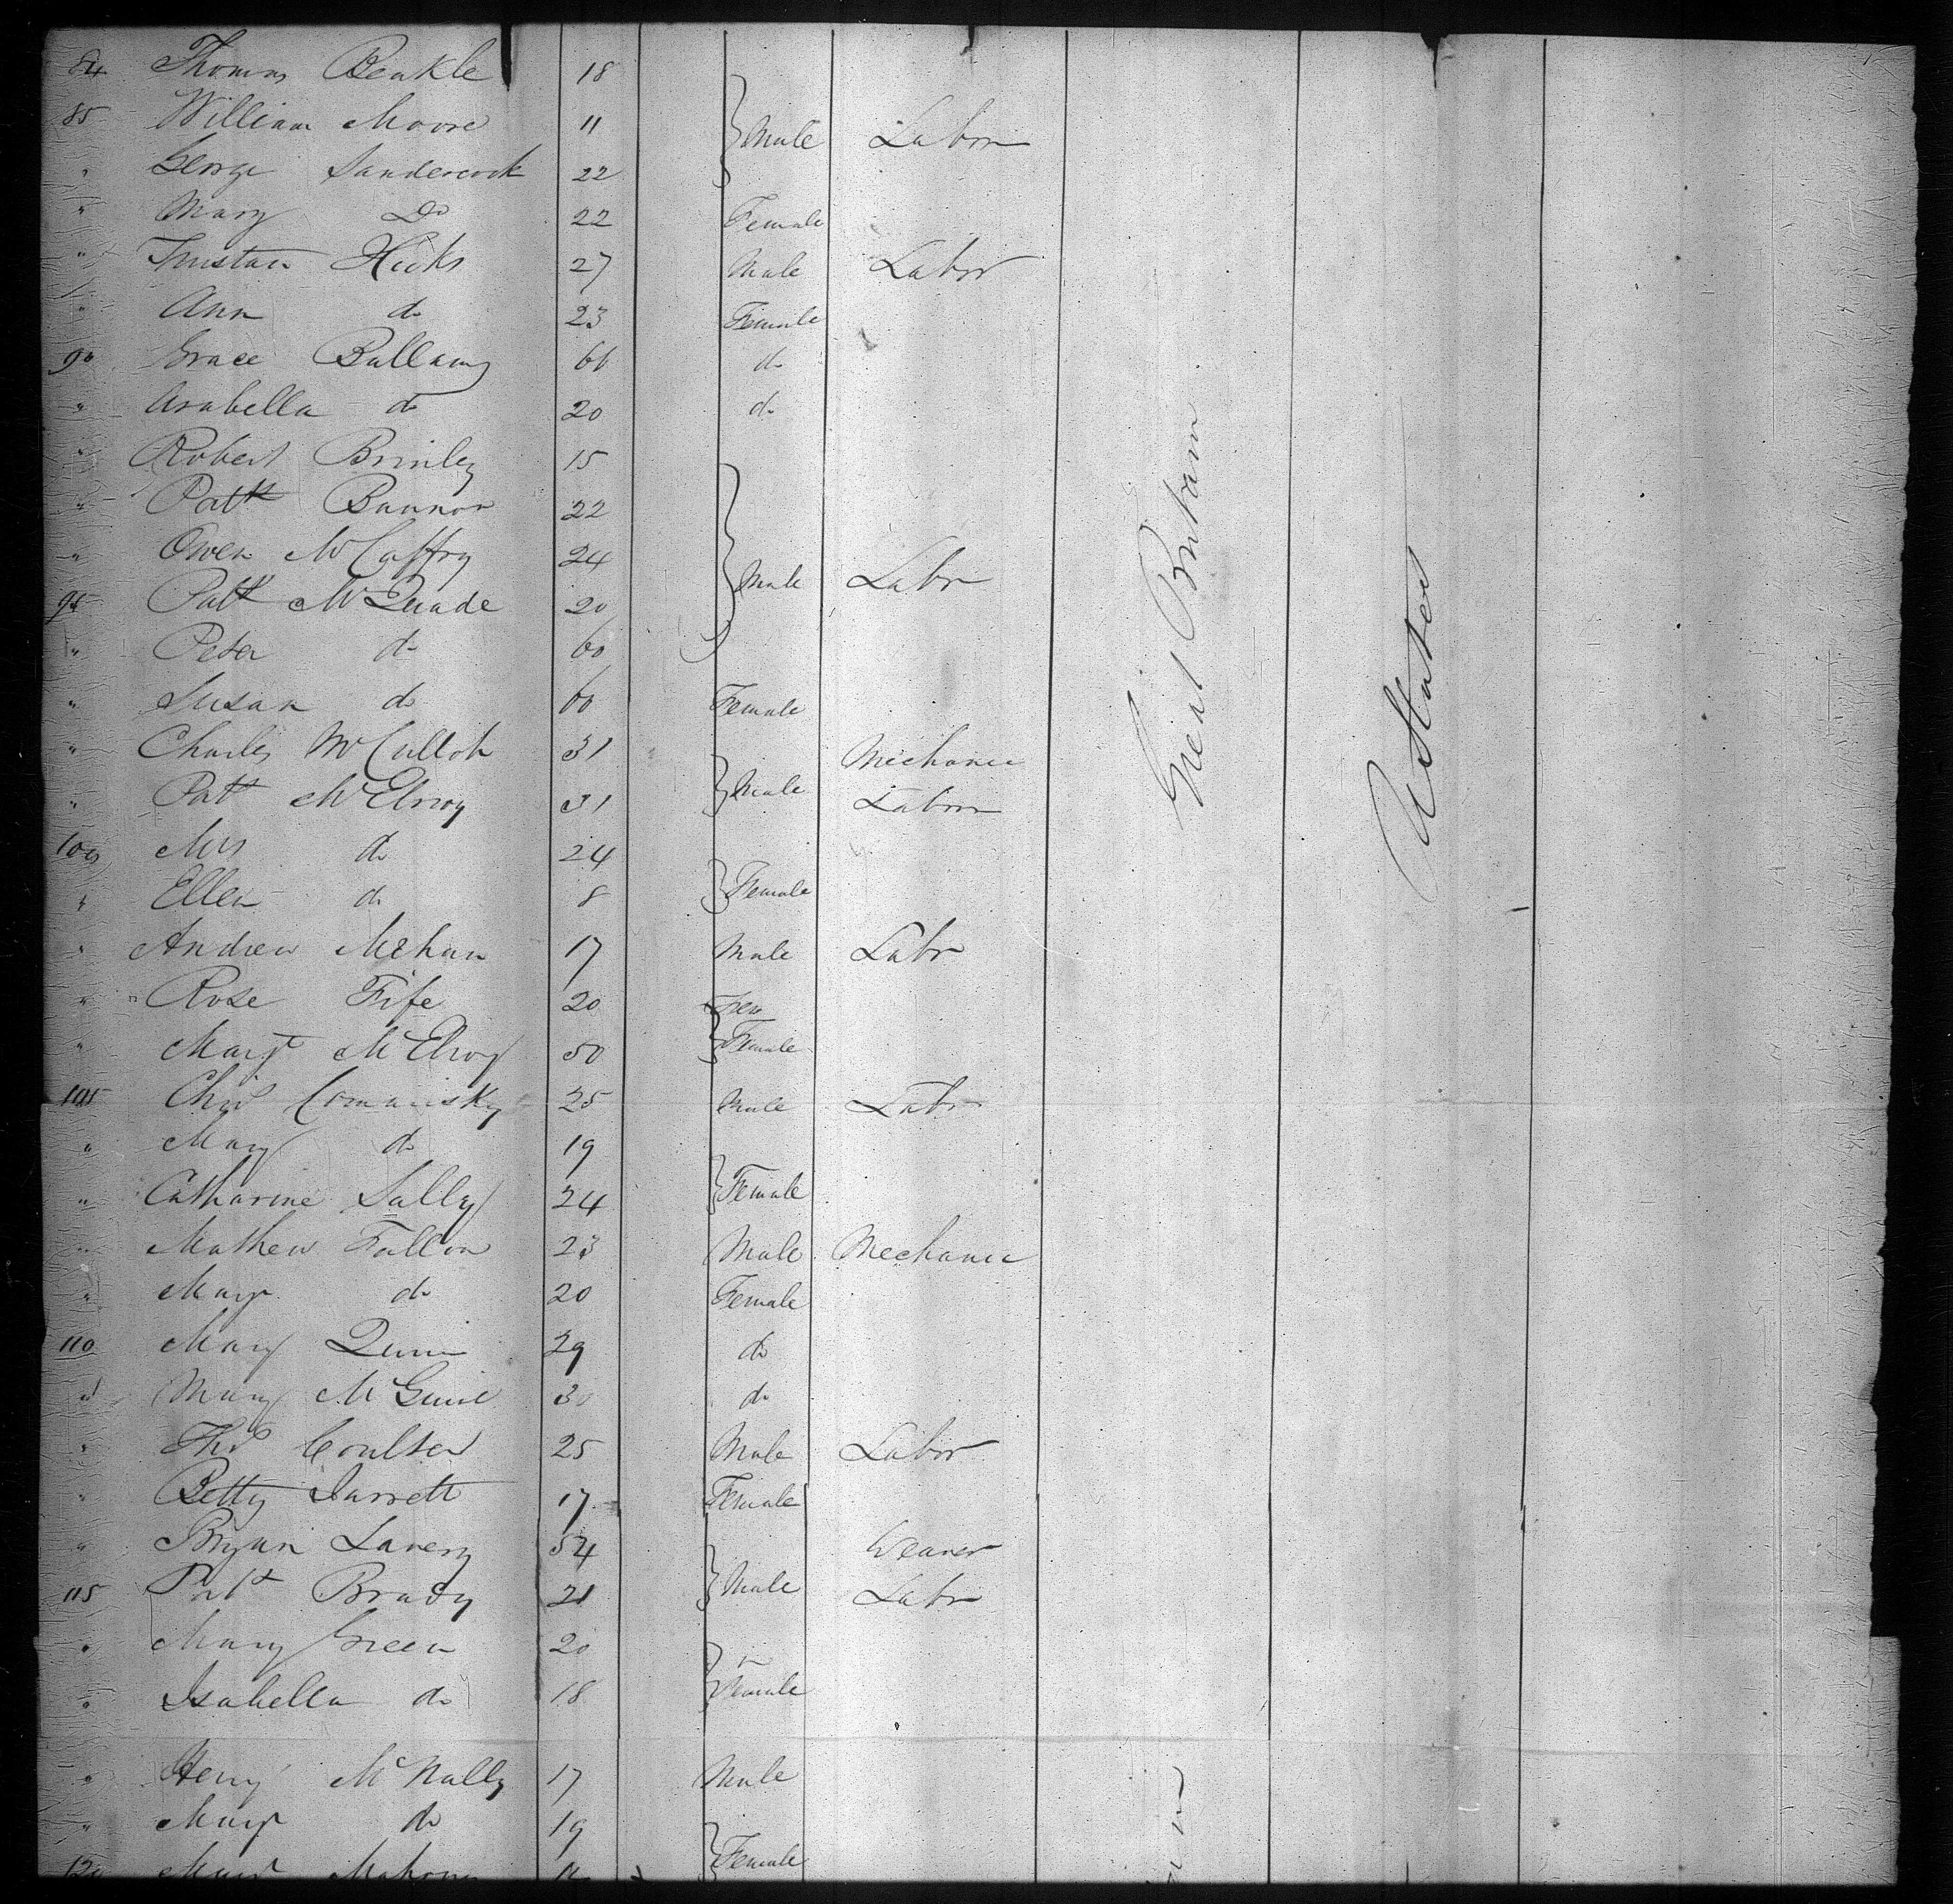 84 Thomas Benkle 18
85 William Moore 11 Male Labor
" George Sandercock 22
" Mary Do 22 Female
" Tristan Hicks 27 Male Labor
" Ann do 23 Female
90 Grace Bullamy 66 do
" Arabella do 20 do
" Robert Brinley 15
" Patk Bannon 22
" Owen McCaffry 24 Male Labr
95 Patk McQuade 20
" Peter do 60
" Susan do 60 Female
" Charles McCulloh 31 Mechanic
" Patk McElroy 31 Male Labor
100 Mrs do 24
" Ellen do 8 Female
" Andrew Mehan 17 Male Labr
" Rose Fife 20 Fem
" Margt McElroy 50 Female
105 Chs Comausky 25 Male Labr
" Mary do 19
" Catharine Sally 24 Female
" Mathew Fallon 23 Male Mechanic
" Mary do 20 Female
110 Mary Quinn 29 do
" Mary McGuire 30 do
" Thos Coulter 25 Male Labor
" Betty Jarrett 17 Female
" Bryan Lavery 54 Weaver
115 Patk Brady 21 Male Labr
" Mary Green 20
" Isabella do 18 Female
" Henry McNally 17 Male
" Mary do 19
120 Mahony Female
Great Britain
UStates